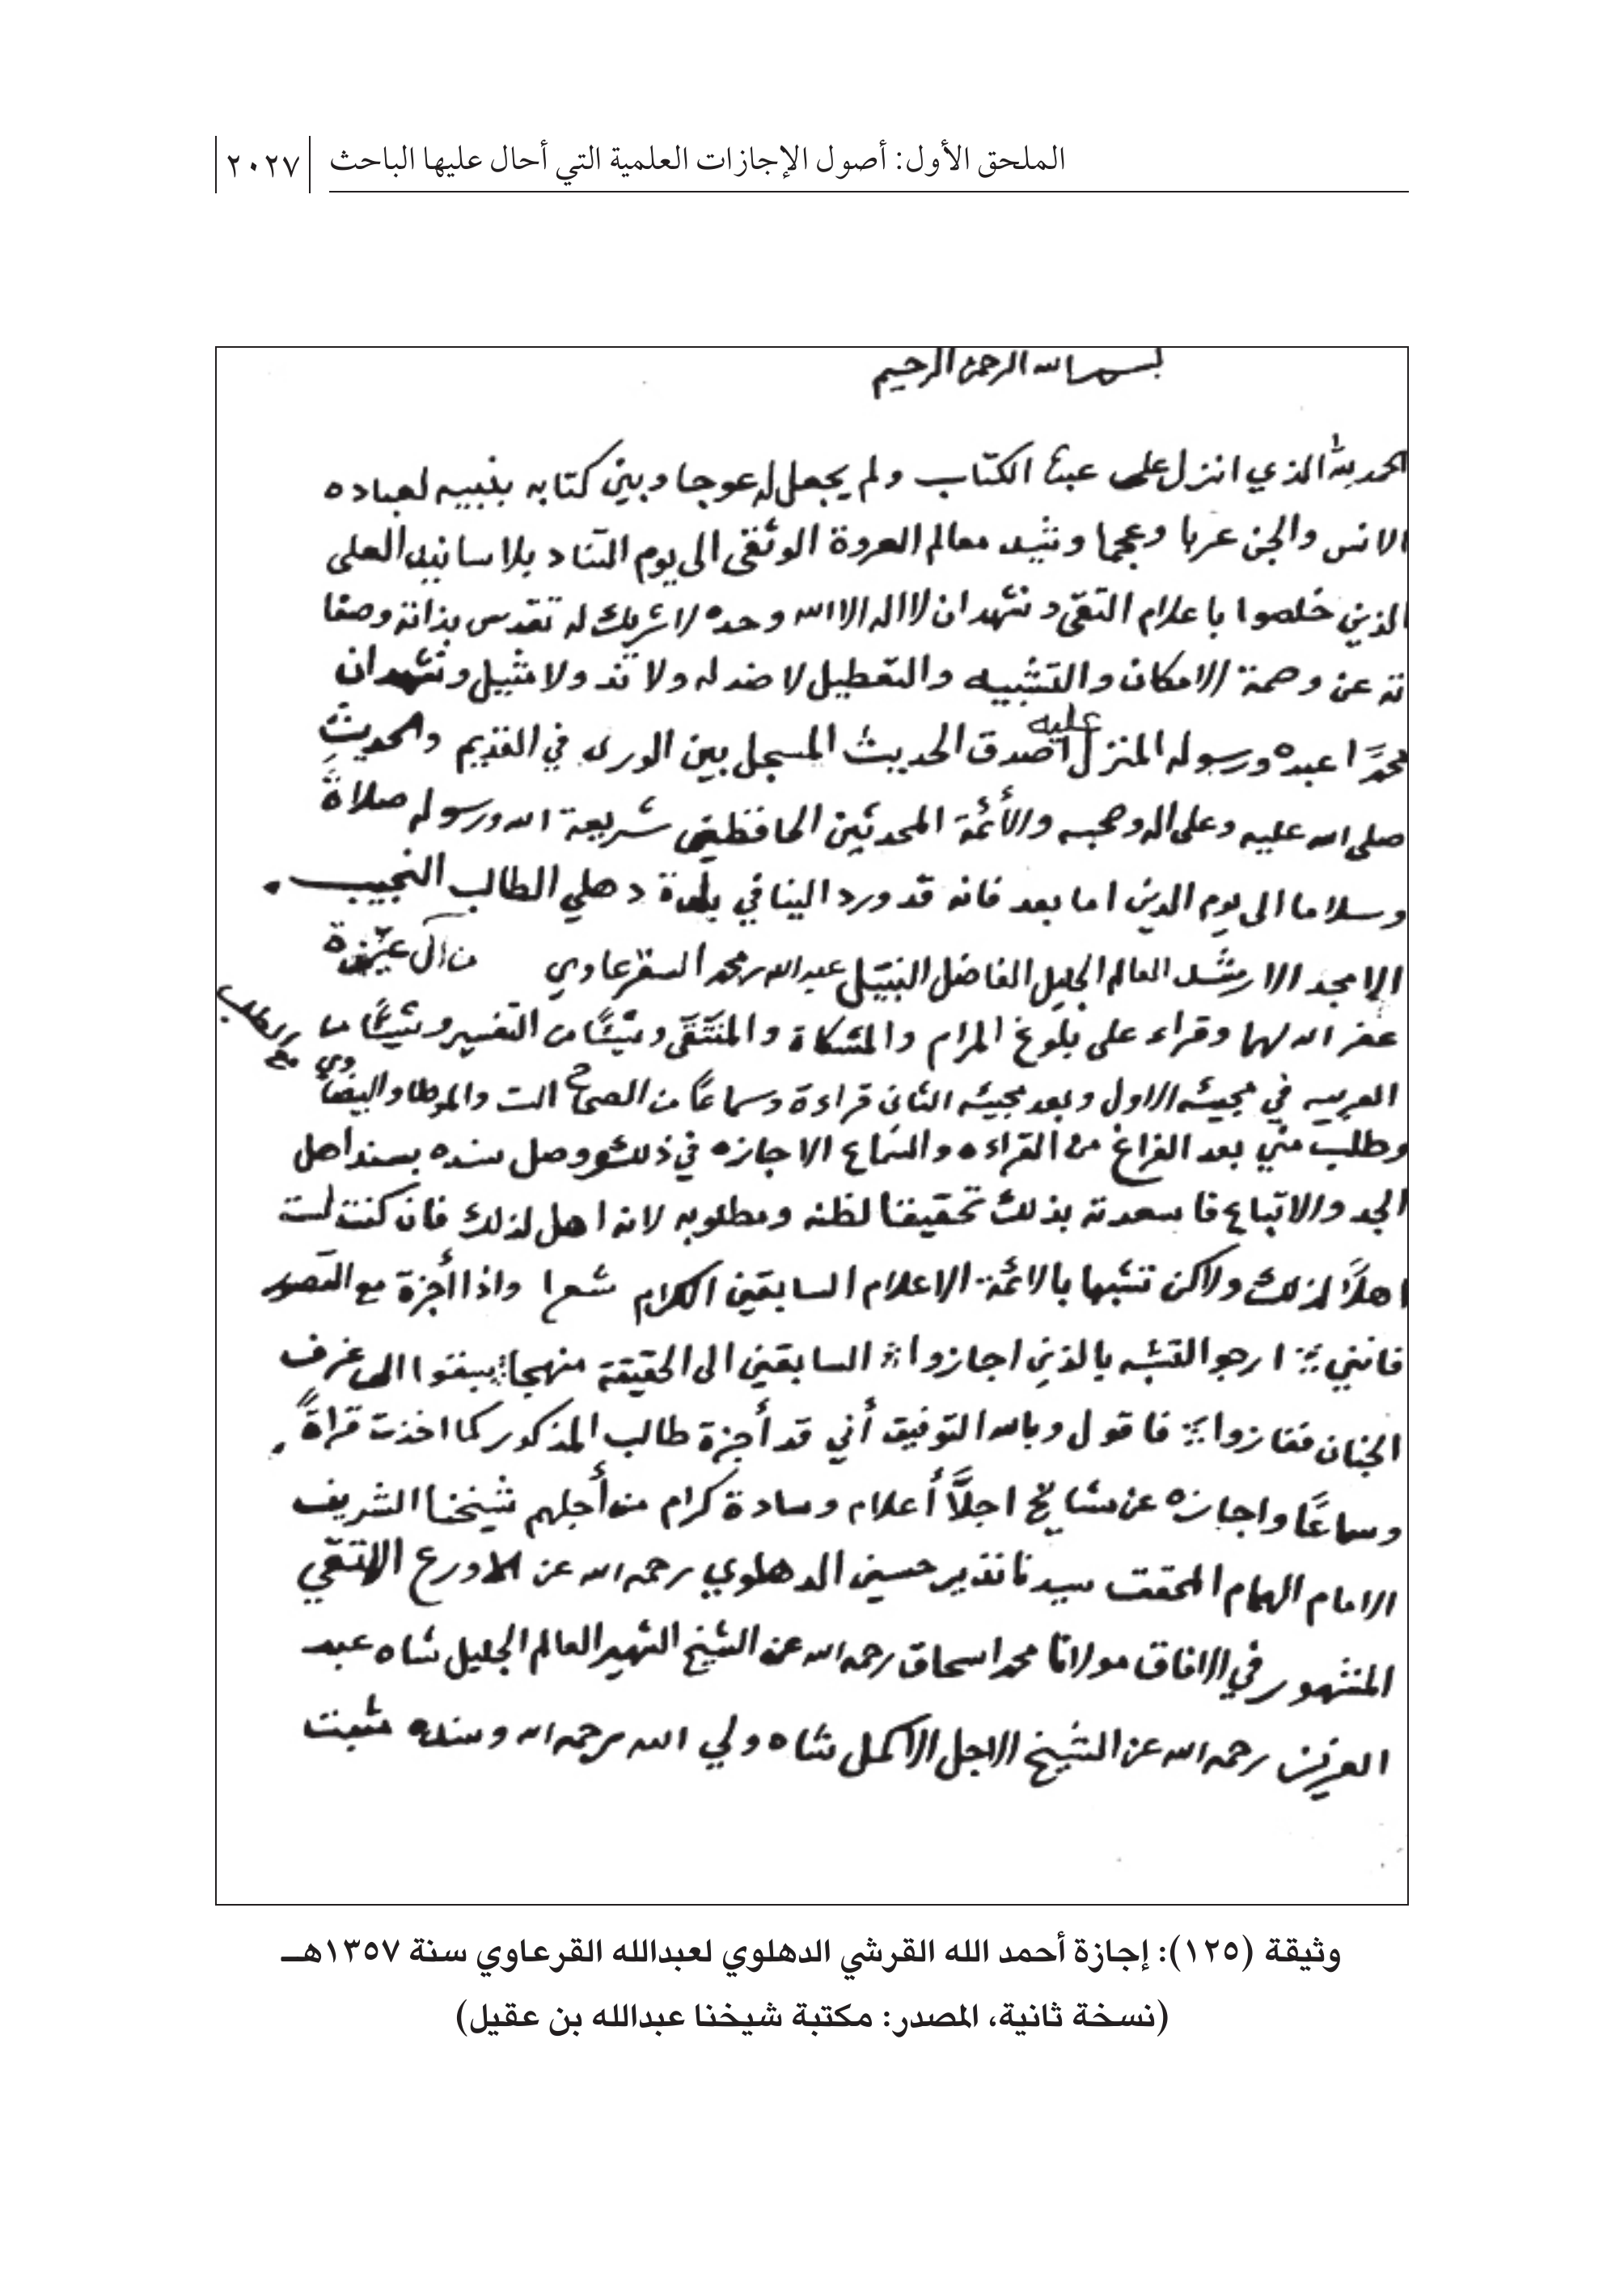 الملحق الأول: أصول الإجازات العلمية التي أحال عليها الباحث ٢٠٢٧
بسم الله الرحمن الرحيم
الحمد لله الذي انزل على عبده الكتاب ولم يجعل له عوجا وبين كتابه بنبيه لعباده
الانس والجن عربا وعجما وشيد معالم العروة الوثقى الى يوم التناد بلاسانيد العلى
الذين خلصوا باعلام التقى ونشهد ان لا اله الا الله وحده لا شريك له تقدس بذاته وصفا
ته عن وصمة الامكان والتشبيه والتعطيل لا ضد له ولا ند ولا مثيل ونشهد ان
محمدًا عبده ورسوله المنزل عليه اصدق الحديث المسجل بين الورى في القديم والحديث
صلى الله عليه وعلى اله وصحبه والأئمة المحدثين الحافظين شريعة الله ورسوله صلاةً
وسلاما الى يوم الدين اما بعد فانه قد ورد الينا في بلدة دهلي الطالب النجيب
الامجد الارشد العالم الجليل الفاضل النبيل عبد الله بن محمد القرعاوي من اهل عنيزة
غفر الله لهما وقراء على بلوغ المرام والمشكاة والمنتقى وشيئًا من التفسير وشيئًا من
العربيه في مجيئه الاول وبعد مجيئه الثاني قراءة وسماعًا من الصحاح الست والموطا والبيضاوي مع
وطلب مني بعد الفراغ من القراءه والسماع الاجازه في ذلك ووصل سنده بسند اهل
الجد والاتباع فاسعدته بذلك تحقيقا لظنه ومطلوبه لانه اهل لذلك فان كنت لست
اهلًا لذلك ولاكن تشبها بالائمة الاعلام السابقين الكرام شعرا واذا أجزة مع القصور
فانني ارجو التشبه بالذين اجازوا السابقين الى الحقيقة منهجا سبقوا الى غرف
الجنان ففازوا فاقول وبالله التوفيق أني قد أجزة طالب المذكور كما اخذت قراةً
وسماعًا واجازه عن مشايخ اجلاَّ أعلام وسادة كرام من أجلهم شيخنا الشريف
الامام الهمام المحقق سيدنا نذير حسين الدهلوي رحمه الله عن الاورع التقي
المشهور في الافاق مولانا محمد اسحاق رحمه الله عن الشيخ الشهير العالم الجليل شاه عبد
العزيز رحمه الله عن الشيخ الاجل الاكمل شاه ولي الله رحمه الله وسنده مثبت
وثيقة (١٢٥): إجازة أحمد الله القرشي الدهلوي لعبدالله القرعاوي سنة ١٣٥٧هـ
(نسخة ثانية، المصدر: مكتبة شيخنا عبدالله بن عقيل)